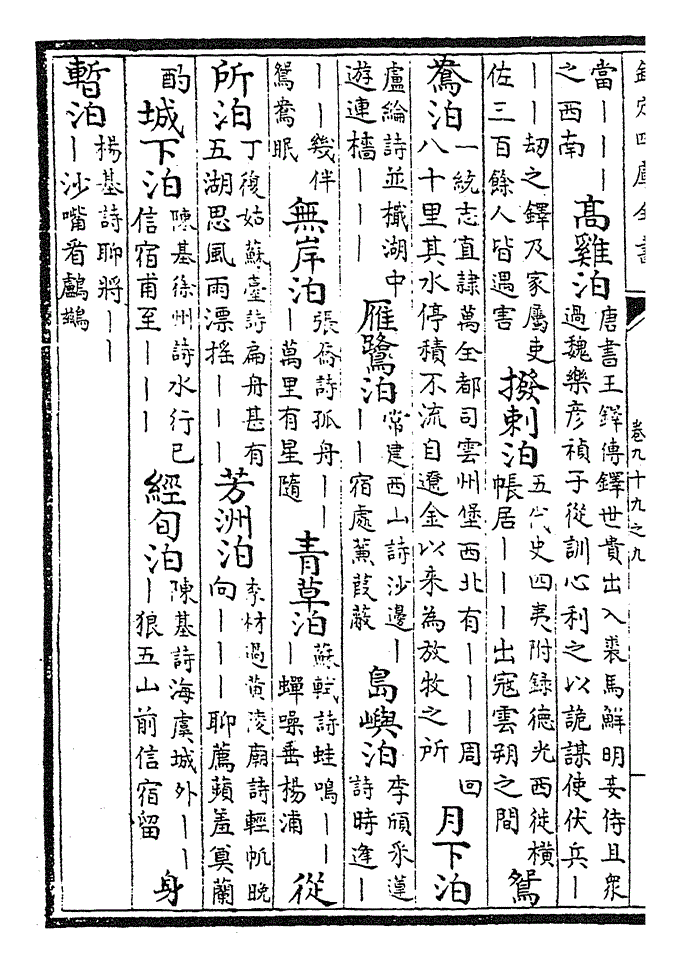 欽定四庫全書
卷九十九之九
當｜｜｜之西南　高雞泊　唐書王鐸傳鐸世貴出入裘馬鮮明妾侍且衆過魏樂彦禎子從訓心利之以詭謀使伏兵｜
｜｜刼之鐸及家屬吏佐三百餘人皆遇害　撥剌泊　五代史四夷附錄德光西徙橫帳居｜｜｜出寇雲朔之間　鴛
鴦泊　一統志直隸萬全都司雲州堡西北有｜｜｜周回八十里其水停積不流自遼金以来為放牧之所　月下泊
盧綸詩並檝湖中遊連檣｜｜｜　雁鷺泊　常建西山詩沙邊｜｜｜宿處蒹葭蔽　島嶼泊　李頎采蓮詩時逢｜
｜｜幾伴鴛鴦眠　無岸泊　張喬詩孤舟｜｜｜萬里有星隨　青草泊　蘇軾詩蛙鳴｜｜｜蟬噪垂楊浦　從
所泊　丁復姑蘇臺詩扁舟甚有五湖思風雨漂摇｜｜｜　芳洲泊　李材過黄淩廟詩輕帆晚向｜｜｜聊薦蘋羞奠蘭
酌　城下泊　陳基徐州詩水行已信宿甫至｜｜｜　經旬泊　陳基詩海虞城外｜｜｜狼五山前信宿留　身
暫泊　楊基詩聊將｜｜｜沙嘴看鸕鷀